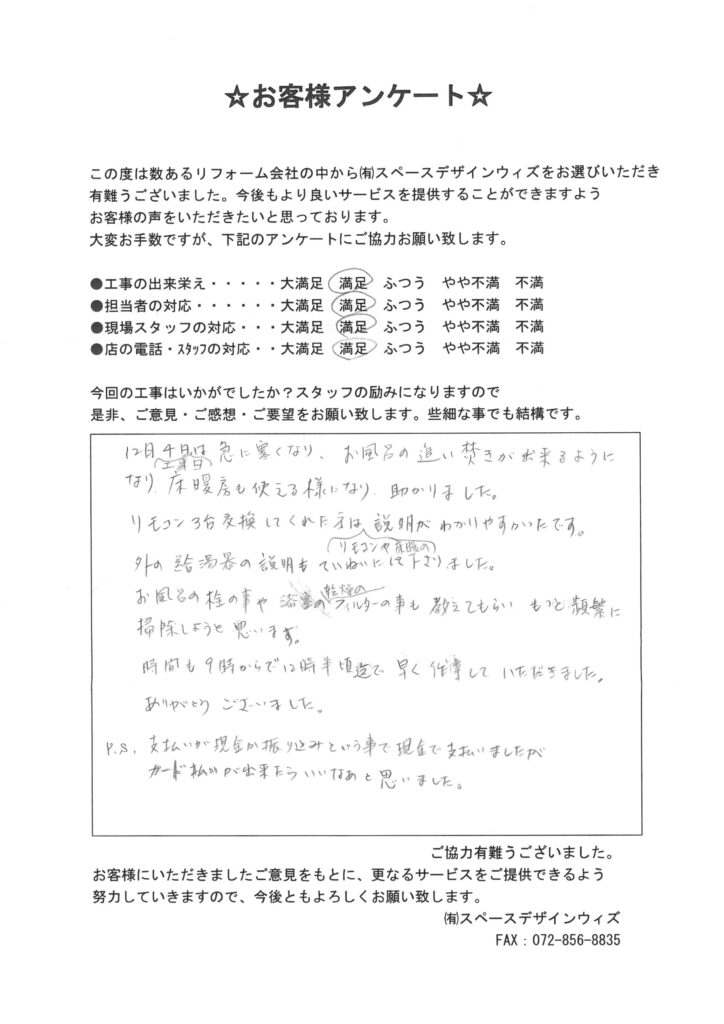 ☆お客様アンケート☆
この度は数あるリフォーム会社の中から㈲スペースデザインウィズをお選びいただき
有難うございました。今後もより良いサービスを提供することができますよう
お客様の声をいただきたいと思っております。
大変お手数ですが、下記のアンケートにご協力お願い致します。
●工事の出来栄え・・・・・大満足 満足 ふつう やや不満 不満
●担当者の対応・・・・・・大満足 満足 ふつう やや不満 不満
●現場スタッフの対応・・・大満足 満足 ふつう やや不満 不満
●店の電話・ｽﾀｯﾌの対応・・大満足 満足 ふつう やや不満 不満
今回の工事はいかがでしたか？スタッフの励みになりますので
是非、ご意見・ご感想・ご要望をお願い致します。些細な事でも結構です。
12月4日は急に寒くなり、お風呂の追い焚きが出来るように
(工事日)
なり、床暖房も使える様になり、助かりました。
リモコン3台交換してくれた方は説明がわかりやすかったです。
(リモコンや床暖の)
外の給湯器の説明もていねいにして下さりました。
お風呂の栓の事や浴室の乾燥のフィルターの事も教えてもらいもっと頻繁に
掃除しようと思います。
時間も9時からで12時半頃迄で早く作業していただきました。
ありがとうございました。
P.S. 支払いが現金か振り込みという事で現金で支払いましたが
カード払いが出来たらいいなあと思いました。
ご協力有難うございました。
お客様にいただきましたご意見をもとに、更なるサービスをご提供できるよう
努力していきますので、今後ともよろしくお願い致します。
㈲スペースデザインウィズ
FAX：072-856-8835